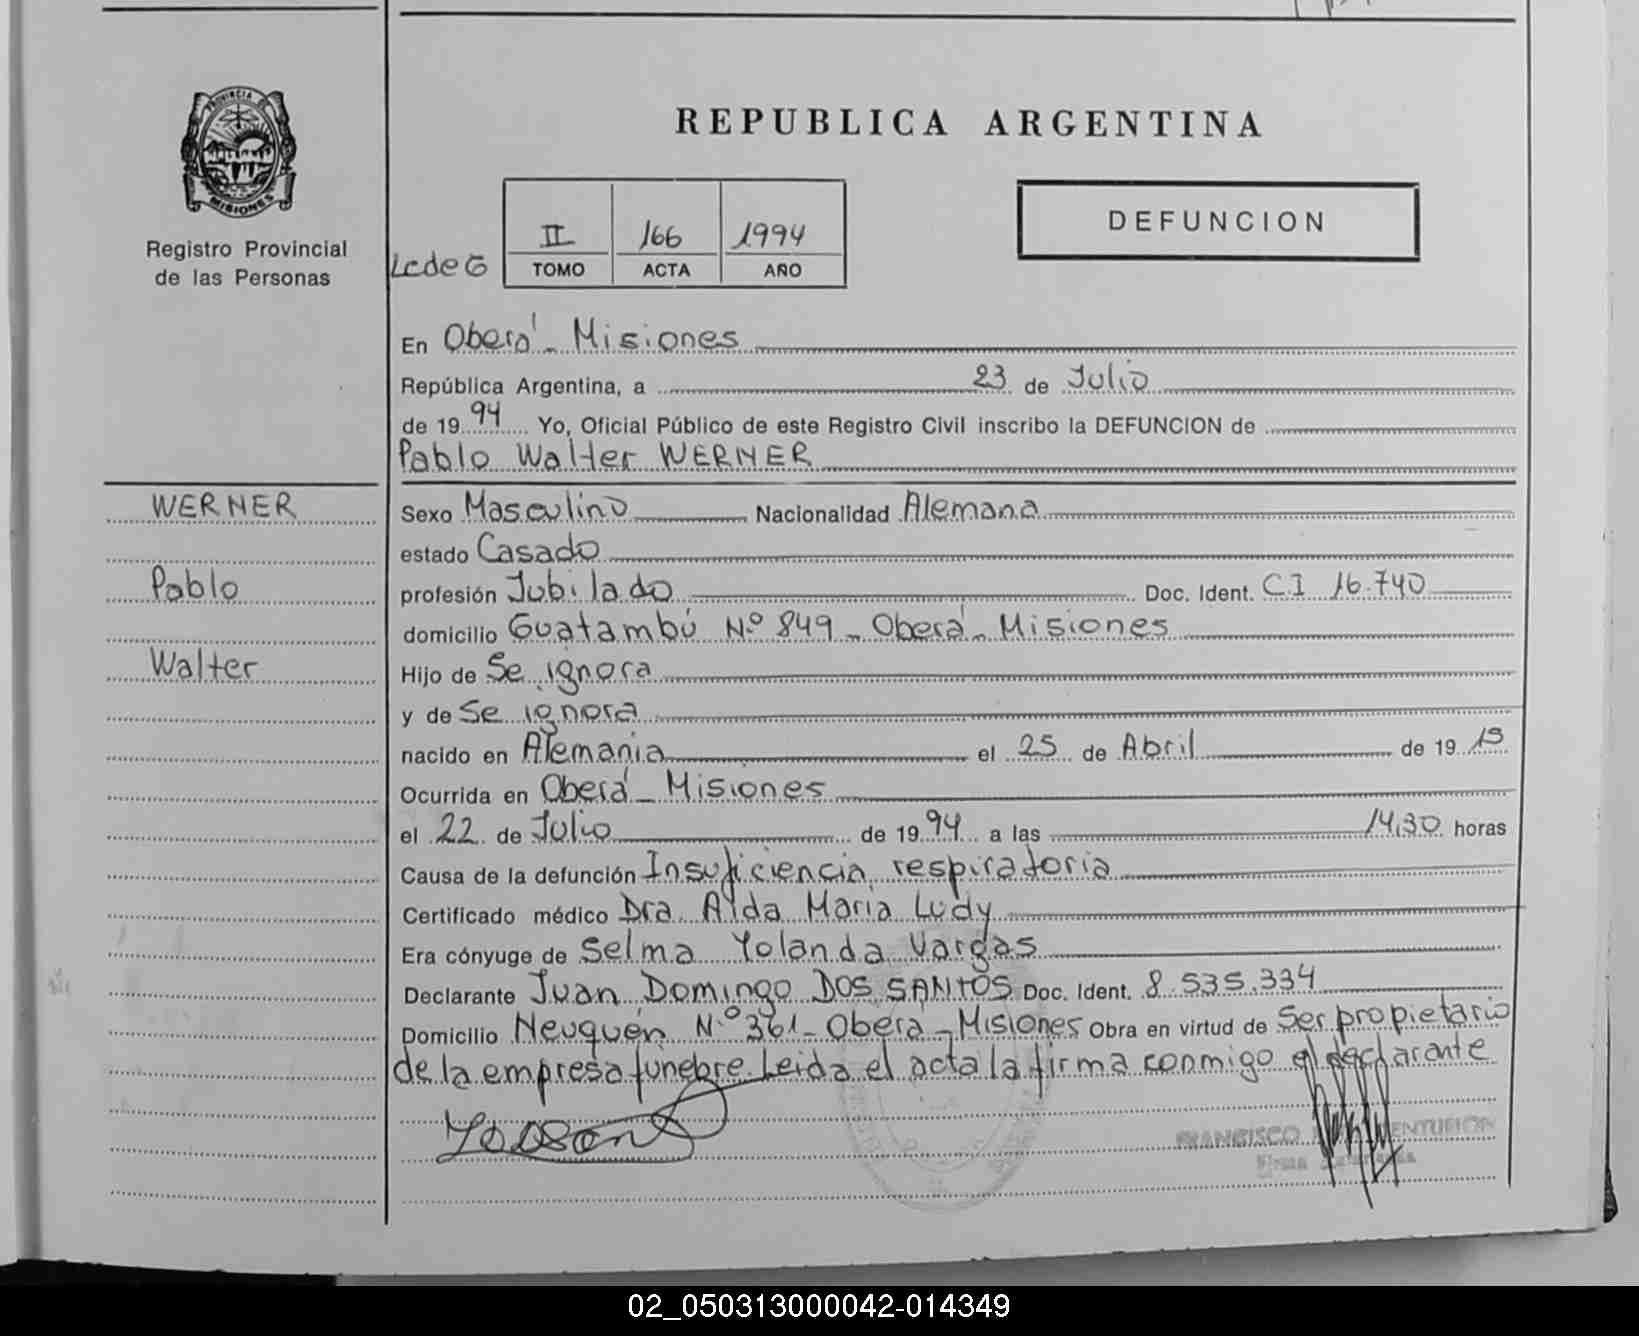 PROVINCIA DE
MISIONES
Registro Provincial
de las Personas
REPUBLICA ARGENTINA
DEFUNCION
II 166 1994
TOMO ACTA AÑO
En Oberá - Misiones
República Argentina, a 23 de Julio
de 1994 Yo, Oficial Público de este Registro Civil inscribo la DEFUNCION de
Pablo Walter WERNER
WERNER
Pablo
Walter
Sexo Masculino Nacionalidad Alemana
estado Casado
profesión Jubilado Doc. Ident. C.I 16.740
domicilio Guatambú Nº 849 - Oberá - Misiones
Hijo de Se ignora
y de Se ignora
nacido en Alemania el 25 de Abril de 19
Ocurrida en Oberá - Misiones
el 22 de Julio de 1994 a las 14,30 horas
Causa de la defunción Insuficiencia respiratoria
Certificado médico Dra Aida Maria Ludy
Era cónyuge de Selma Yolanda Vargas
Declarante Juan Domingo DOS SANTOS Doc. Ident. 8.535.334
Domicilio Neuquén Nº 361 - Oberá - Misiones Obra en virtud de Ser propietario
de la empresa funebre. Leida el acta la firma conmigo el declarante
FRANCISCO
02_050313000042-014349